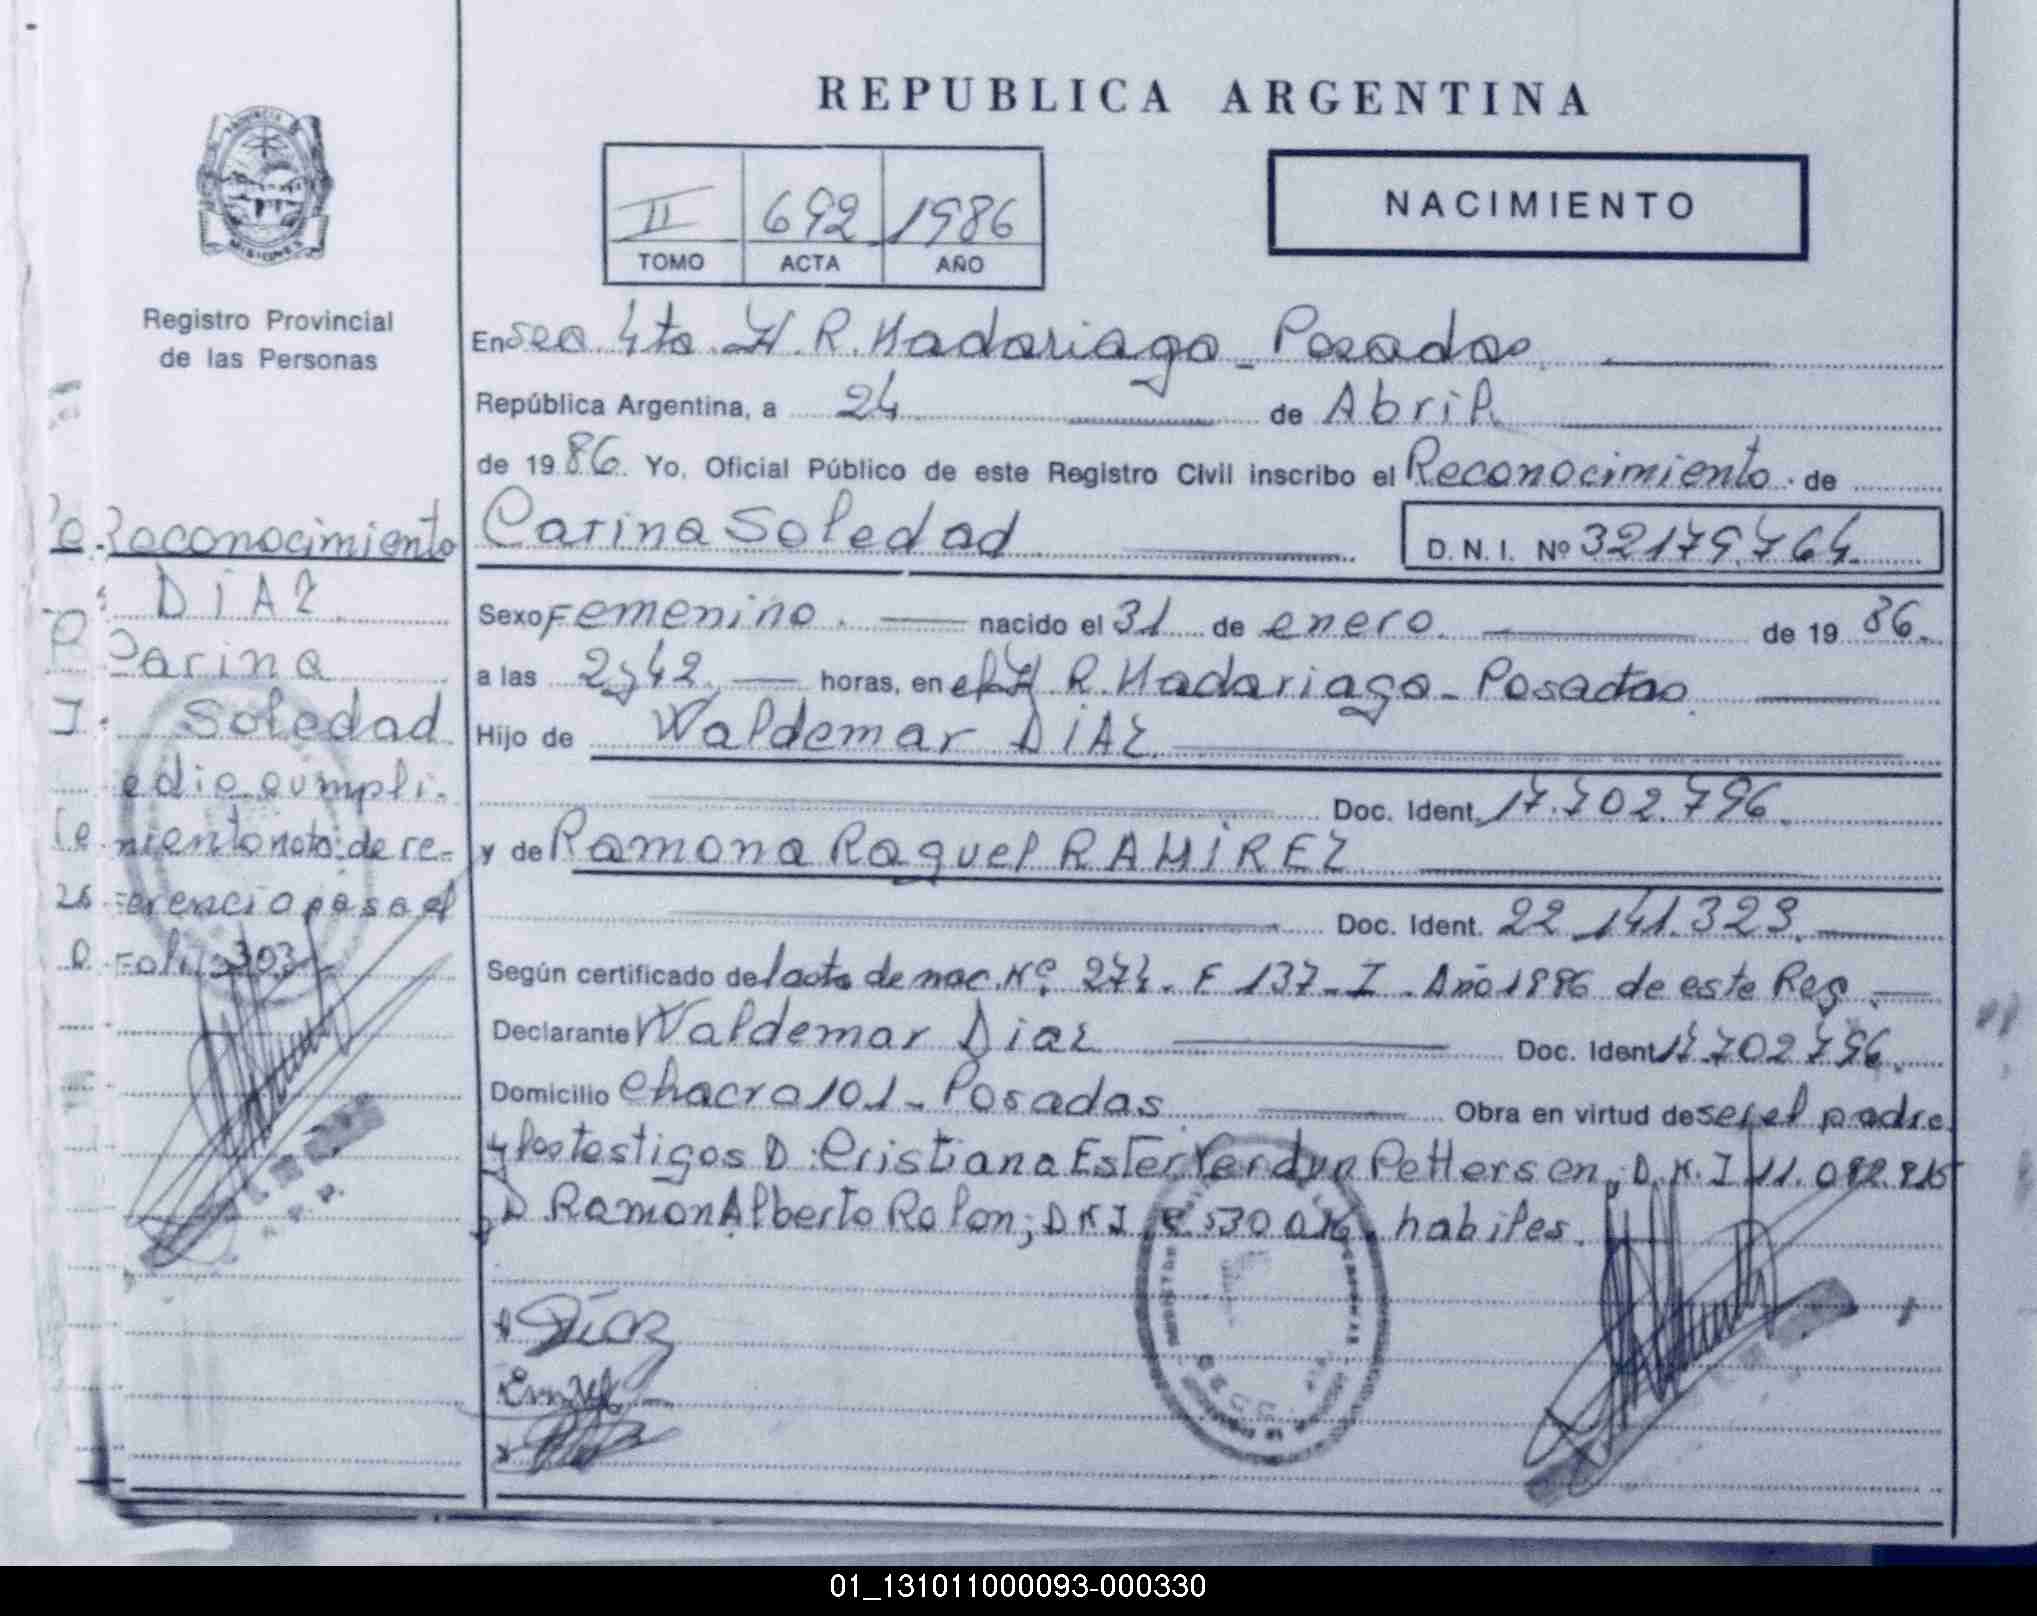 REPUBLICA ARGENTINA
II 692 1986
TOMO ACTA AÑO
NACIMIENTO
PROVINCIA DE
MISIONES
Registro Provincial
de las Personas
En Sec 4ta H. R. Madariaga - Posadas
República Argentina, a 24 de Abril
de 1986. Yo, Oficial Público de este Registro Civil inscribo el Reconocimiento de
Carina Soledad D.N.I. Nº 32179.764
Sexo Femenino nacido el 31 de enero de 1986.
a las 2y42 horas, en el H R. Madariaga - Posadas
Hijo de Waldemar DÍAZ
Doc. Ident. 17.702.796
y de Ramona Raquel RAMÍREZ
Doc. Ident. 22.141.323
Según certificado del acta de nac. Nº 274. F 137 - I. Año 1986 de este Reg.
Declarante Waldemar Díaz Doc. Ident 17.702.796
Domicilio Chacra 101 - Posadas Obra en virtud de ser el padre
y los testigos D. Cristiana Ester Verdun Pettersen, D.N.I 11.
y D Ramon Alberto Rolon; DNI habiles.
Díaz
Reconocimiento
DÍAZ
Carina
Soledad
edio cumpli-
miento nota de re-
ferencia pasa al
Folio 303
01_131011000093-000330